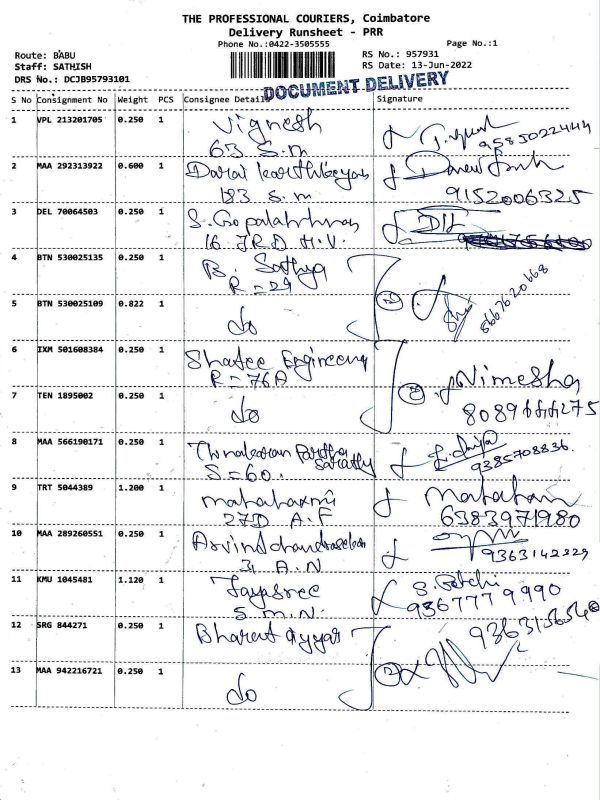 THE PROFESSIONAL COURIERS, Coimbatore
Delivery Runsheet - PRR
Phone No.:0422-3505555
Page No.:1
Route: BABU
RS No.: 957931
Staff: SATHISH
RS Date: 13-Jun-2022
DRS No.: DCJB95793101
DOCUMENT DELIVERY
S No Consignment No Weight PCS Consignee Details Signature
1 VPL 213201705 0.250 1 Vignesh
63 S.M 9585022444
2 MAA 292313922 0.600 1 Darai Karthikeyan
183 S.M 9152006325
3 DEL 70064503 0.250 1 S. Gopalakrishnan
16. JRD H.V.
4 BTN 530025135 0.250 1 B. Sathya
R=29
5 BTN 530025109 0.822 1 do 8667620668
6 IXM 501608384 0.250 1 Engineering Nimesha
R=76A
7 TEN 1895002 0.250 1 do
8 MAA 566190171 0.250 1 Partha
Sarathy
S=60. 9385708836
9 TRT 5044389 1.200 1 Mahalaxmi
27D A.F 6383971980
10 MAA 289260551 0.250 1 Arvind chandrasekar
A.N
11 KMU 1045481 1.120 1 Jayasree
S.M.N. 9367779990
12 SRG 844271 0.250 1 Bharat ayyar
13 MAA 942216721 0.250 1 do